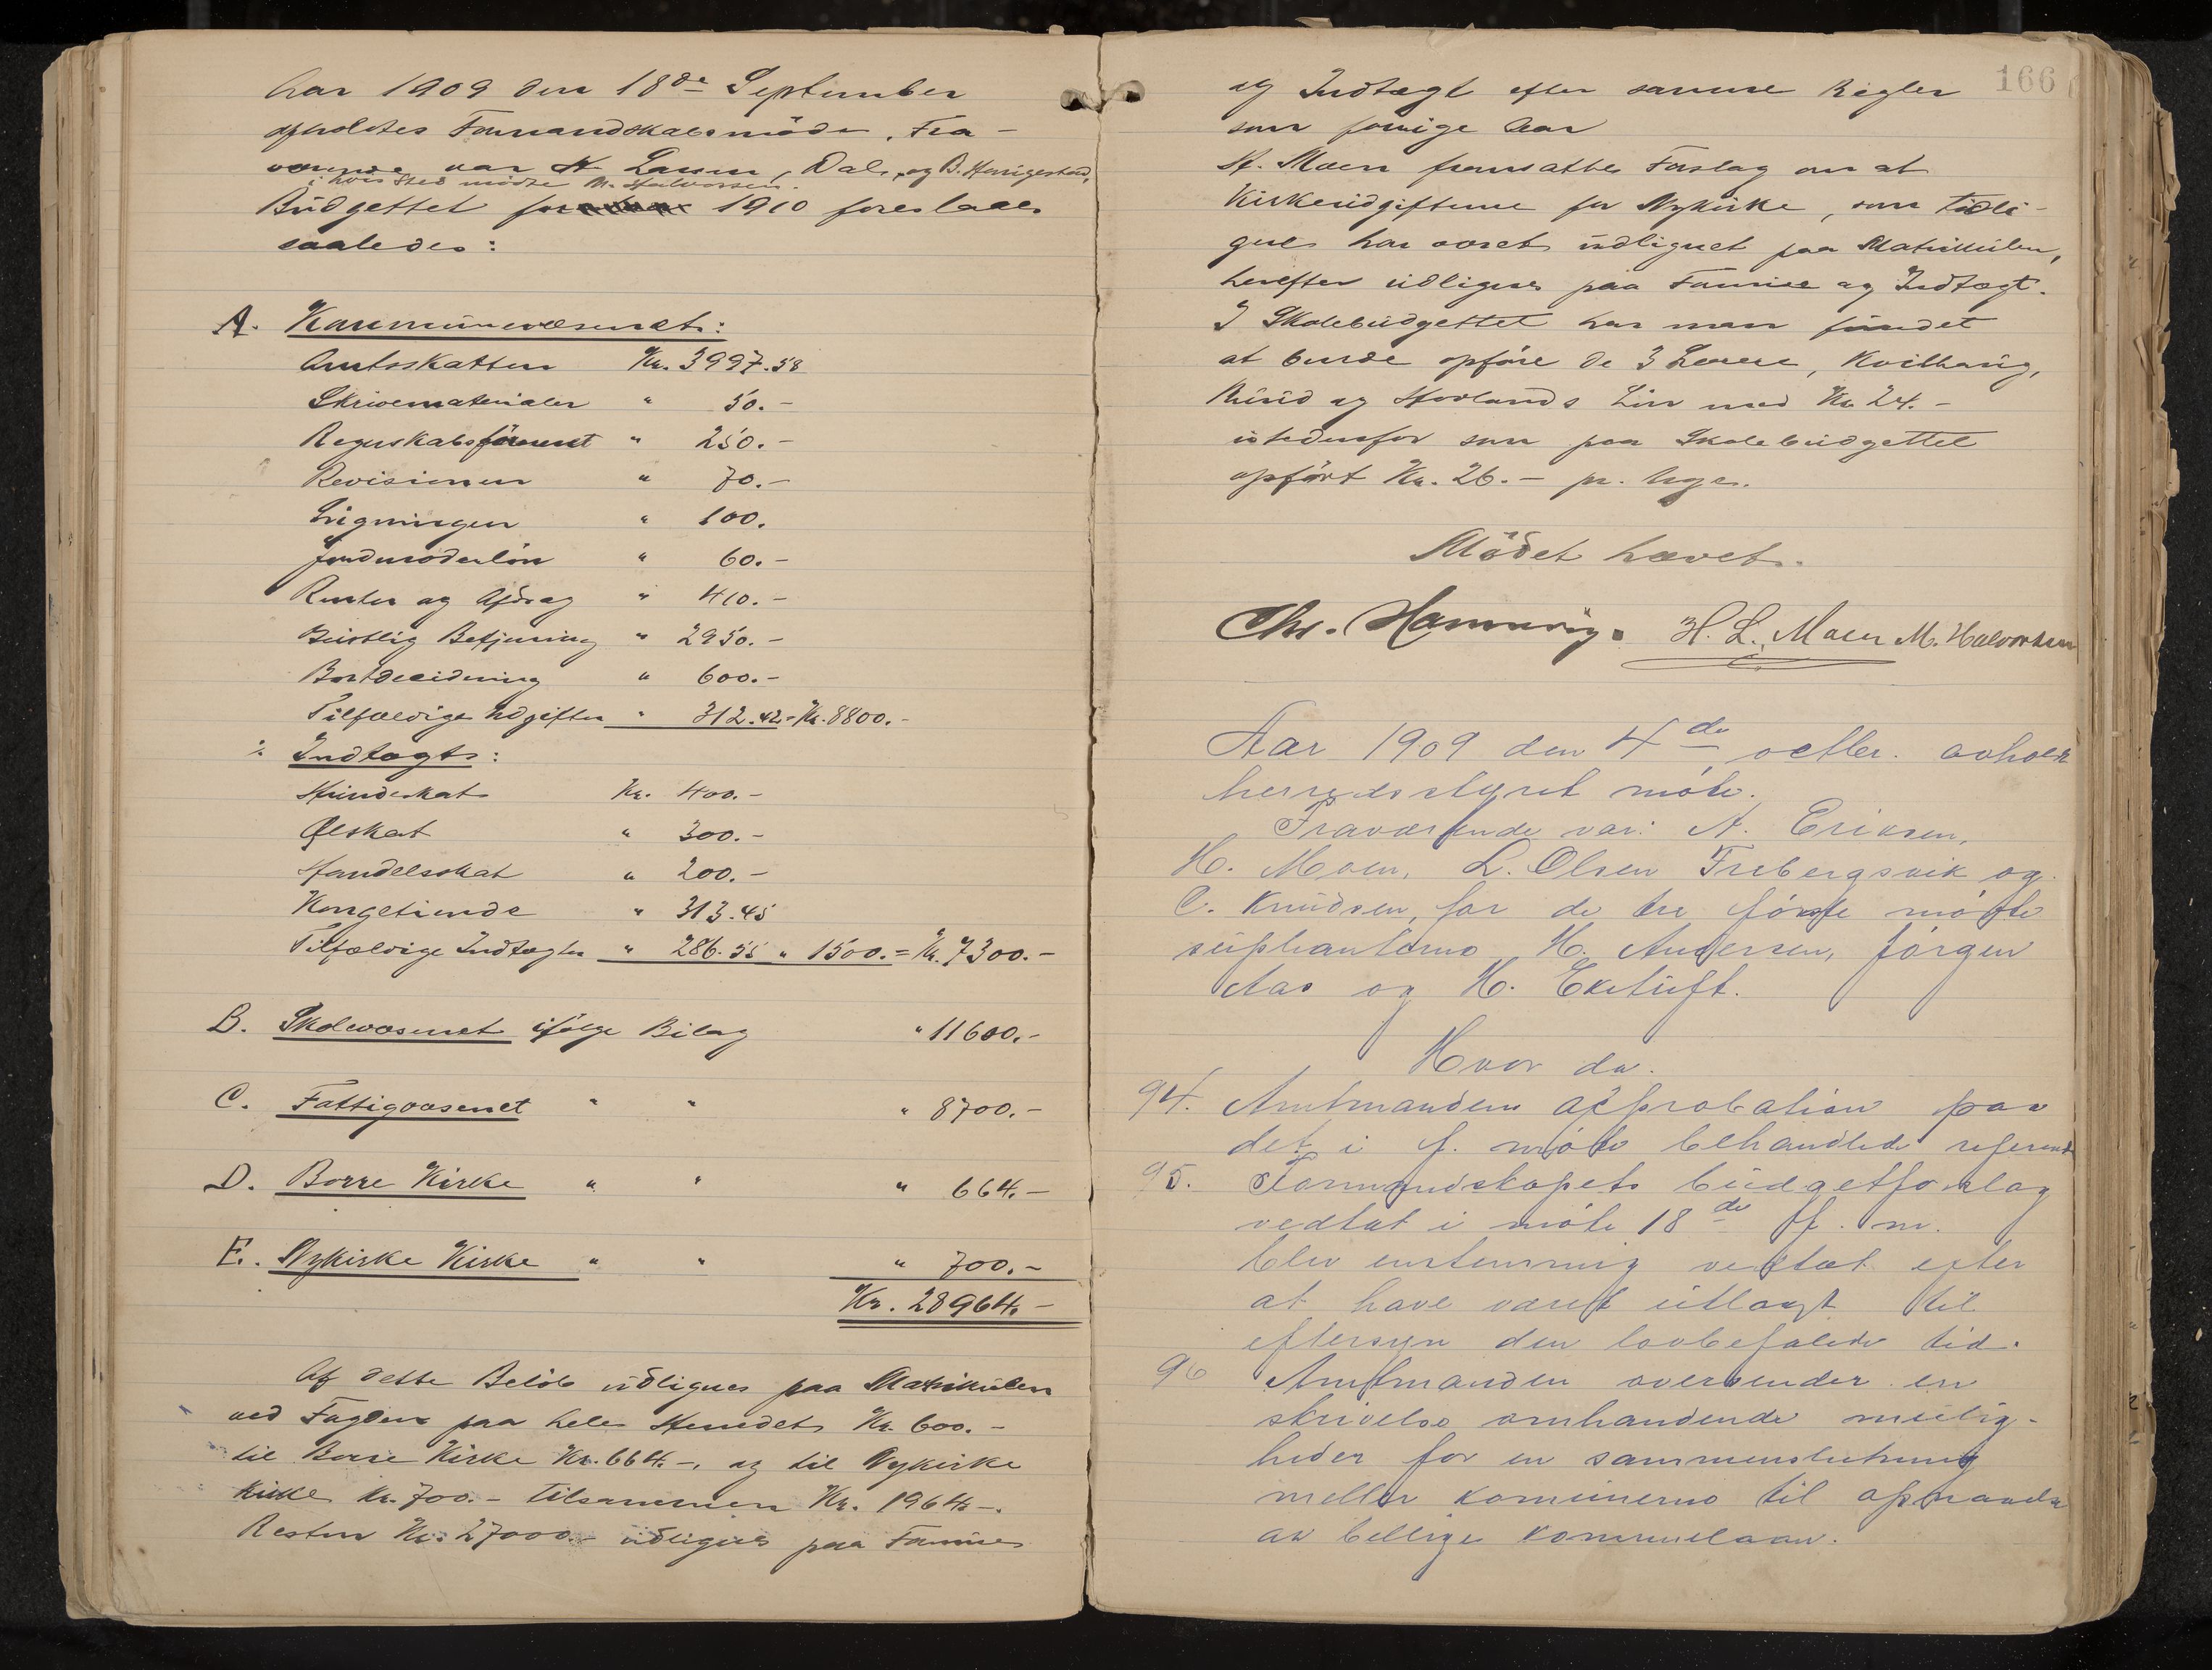 Aar 1909 den 18de September
afholdtes Formandskabsmöde. Fra-
værende var H. Larsen, Dal, og B. Horrigestad,
i hvis Sted mödte M. Halvorsen.
Budgettet for 1910 foreslaaes
saaledes:
A. Kommunevæsenet:
Amtsskatten Kr. 3997.58
Skrivematerialer " 50.-
Regnskabsförnenst " 250.-
Revisionen " 70.-
Ligningen " 100.
Jordmoderlön " 60.-
Renter og Afdrag " 410.-
Geistlig Betjening " 2950.-
" 600.-
Tilfældige Udgifter " 312.42 = Kr. 8800.-
⁒ Indtægt:
Hundeskat Kr. 400.-
Ølskat " 300.-
Handelsskat " 200.-
Kongetiende " 313.45
Tilfældige Indtægter " 286.55 " 1500. = Kr. 7300.-
B. Skolevæsenet ifölge Bilag " 11600.-
C. Fattigvæsenet " " " 8700.-
D. Borre Kirke " " " 664.-
E. Nykirke Kirke " " " 700.-
Kr. 28964.-
Af dette Belöb udlignes paa Matrikulen
ved Fogden paa hele Herredet Kr. 600.-
til Borre Kirke Kr. 664.-, og til Nykirke
Kirke Kr. 700.- tilsammen Kr. 1964.-.
Resten Kr. 27000.- udlignes paa Formue
166
og Indtægt efter samme Regler
som forrige Aar
H. Moen fremsatte Forslag om at
Kirkeudgifterne for Nykirke, som tidli-
gere har været udlignet paa Matrikulen,
herefter udlignes paa Formue og Indtægt.
I Skolebudgettet har man fundet
at burde opföre de 3 Lærere, Kvilhaug,
Ruud og Hovlands Lön med Kr. 24.-
istedenfor som paa Skolebudgettet
opfört Kr. 26.- pr. Uge.
Mödet hævet.
Chr. Hannevig. H. L. Moen M. Halvorsen
Aar 1909 den 4de octbr. avholdt
herredsstyret möte.
Fraværende var: A. Eriksen,
H. Moen, L. Olsen Frebergsvik og
C. Knudsen, for de tre förste mötte
suppleanterne H. Andersen, Jörgen
Aas og H. Eketuft.
Hvor da.
94. Amtmandens approbation paa
det i f. möte behandlede referert
95. Formandskapets budgetforslag
vedtat i möte 18de f. m.
blev enstemmig vedtat efter
at have været utlagt til
eftersyn den lovbefalede tid.
96 Amtmanden oversender en
skrivelse omhandlende mulig-
heder for en sammenslutning
mellem komunerne til opnaaelse
av billige kommunelaan.